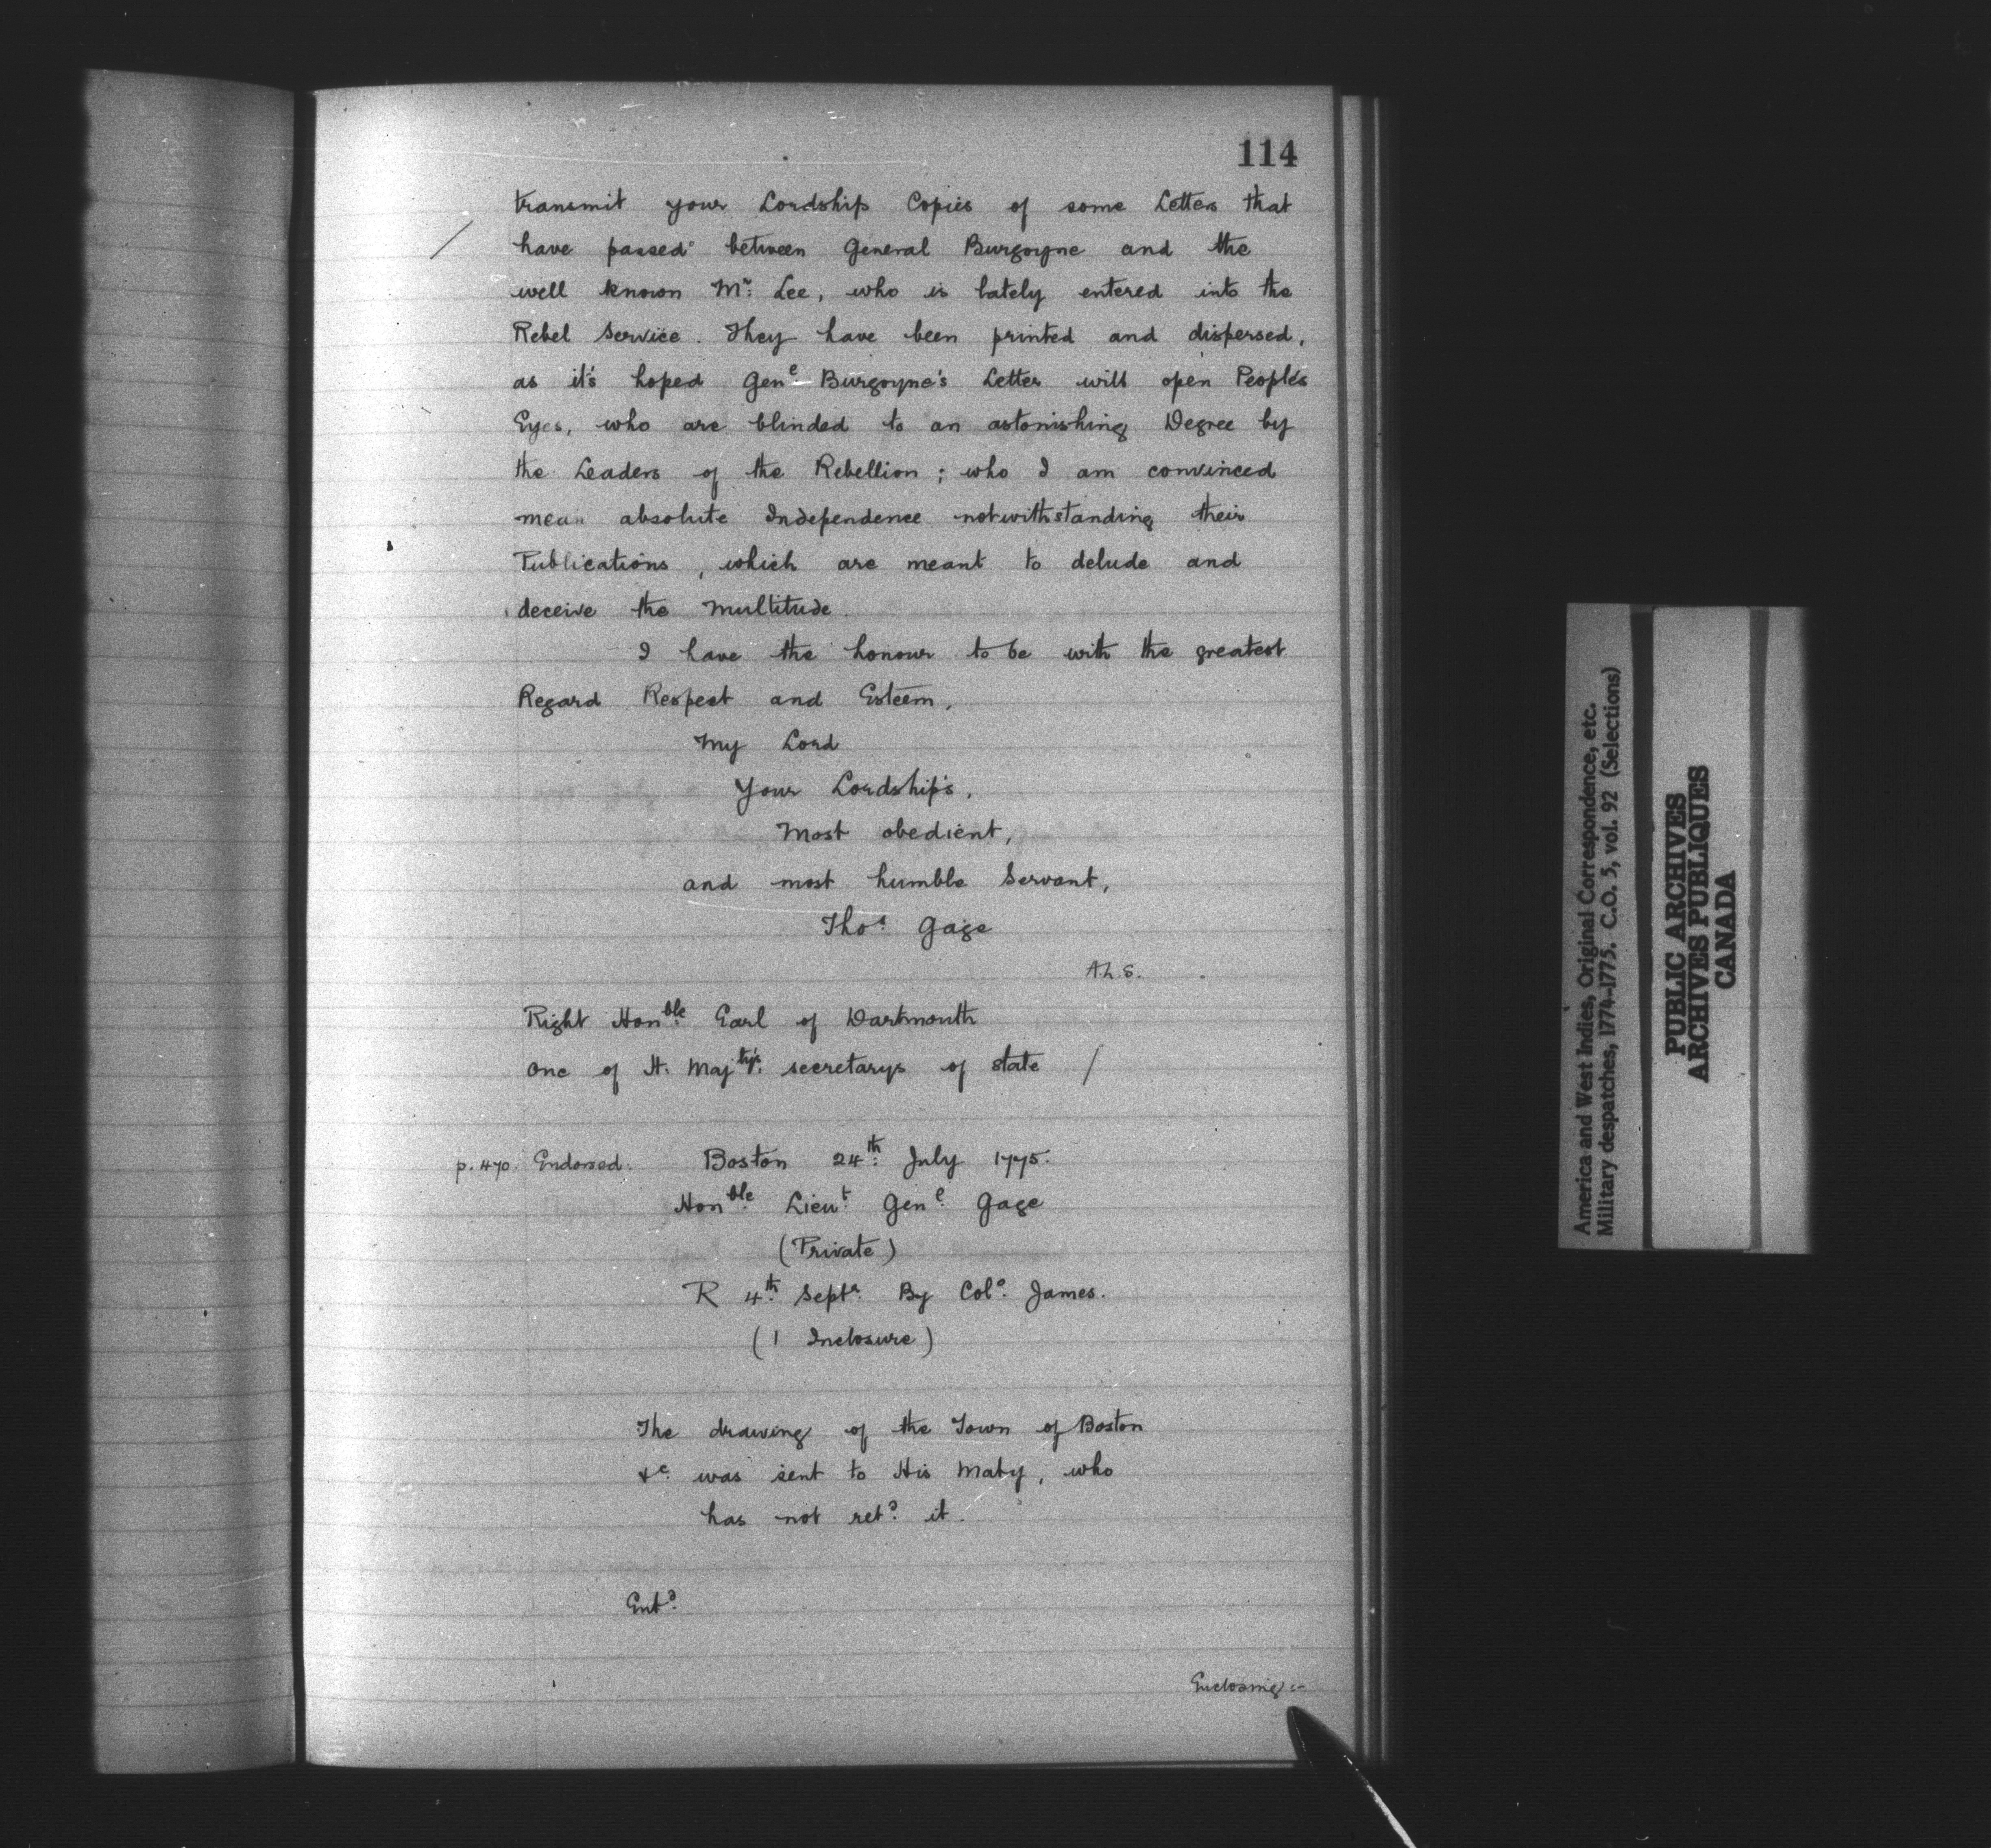 114
transmit your Lordship Copies of some Letters that
have passed between General Burgoyne and the
well known Mr. Lee, who is lately entered into the
Rebel Service. They have been printed and dispersed,
as it's hoped Genl Burgoyne's Letter will open People's
Eyes, who are blinded to an astonishing Degree by
the Leaders of the Rebellion; who I am convinced
mean absolute Independence notwithstanding their
Publications, which are meant to delude and
deceive the Multitude.
I have the honour to be with the greatest
Regard Respect and Esteem,
My Lord
Your Lordship's,
Most obedient,
and most humble Servant,
Thos. Gage
A.L.S.
Right Honble. Earl of Dartmouth
one of H. Majty's. secretarys of state /
p. 470. Endorsed. Boston 24th. July 1775.
Honble. Lieut. Genl. Gage
(Private)
R 4th. Septr. By Colo. James.
(1 Inclosure)
The drawing of the Town of Boston
&c. was sent to His Maty, who
has not retd. it.
Entd.
Enclosing:-
America and West Indies, Original Correspondence, etc.
Military despatches, 1774-1775. C.O. 5, vol. 92 (Selections)
PUBLIC ARCHIVES
ARCHIVES PUBLIQUES
CANADA